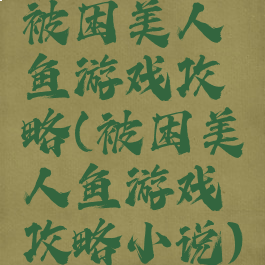 被困美人
鱼游戏攻
略(被困美
人鱼游戏
攻略小说)